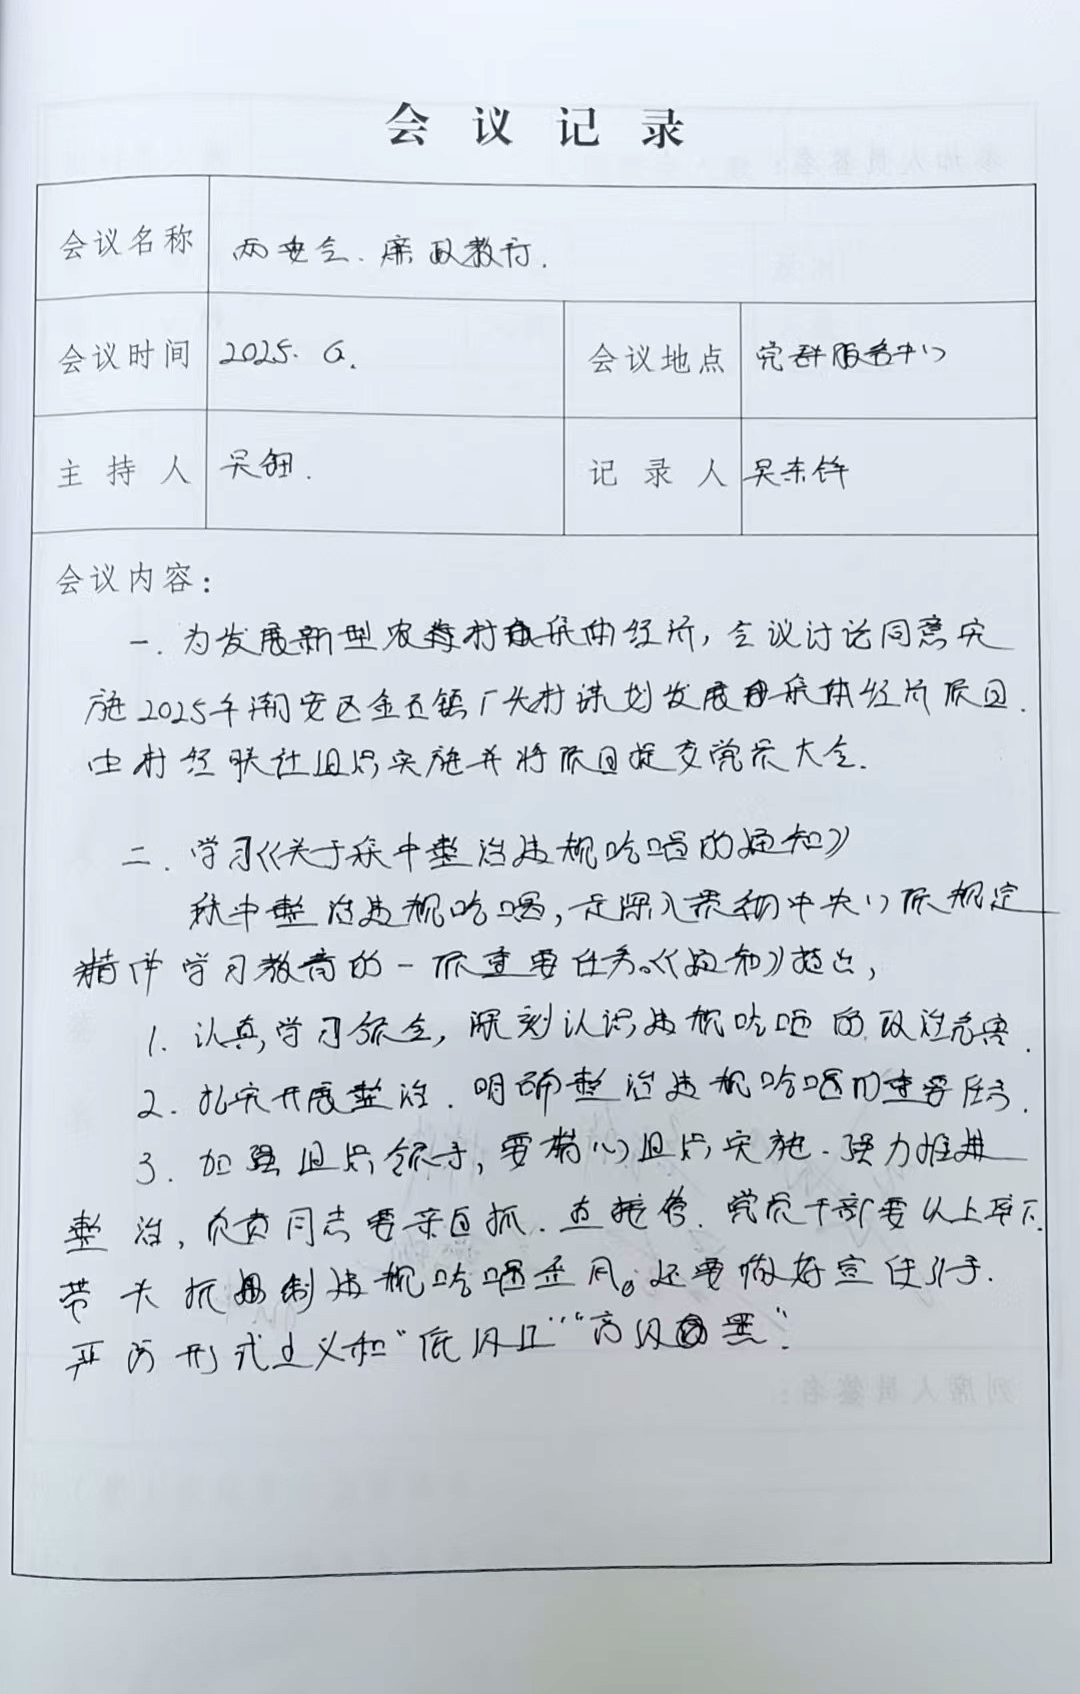 会议记录
会议名称 两委会、廉政教育.
会议时间 2025. 6. 会议地点 党群服务中心
主持人 吴钿. 记录人 吴东锋
会议内容：
一. 为发展新型农村集体经济，会议讨论同意实
施2025年潮安区金石镇厂头村谋划发展集体经济项目.
由村经联社组织实施并将项目提交党员大会.
二. 学习《关于集中整治违规吃喝的通知》
集中整治违规吃喝，是深入贯彻中央八项规定
精神学习教育的一项重要任务。《通知》指出，
1. 认真学习领会，深刻认识违规吃喝的政治危害.
2. 扎实开展整治. 明确整治违规吃喝的重要任务.
3. 加强组织领导，要精心组织实施. 强力推进
整治，负责同志要亲自抓. 直接管. 党员干部要以上率下.
带头抵制违规吃喝歪风。还要做好宣传引导.
严防形式主义和“低级红”“高级黑”.
参加人员签名：
列席人员签名：